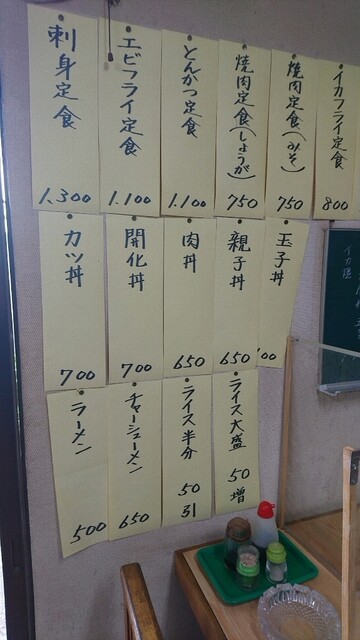 イカフライ定食
800
焼肉定食(みそ)
750
焼肉定食(しょうが)
750
とんかつ定食
1.100
エビフライ定食
1.100
刺身定食
1.300
玉子丼
00
親子丼
650
肉丼
650
開化丼
700
カツ丼
700
ライス大盛
50
増
ライス半分
50
引
チャーシューメン
650
ラーメン
500